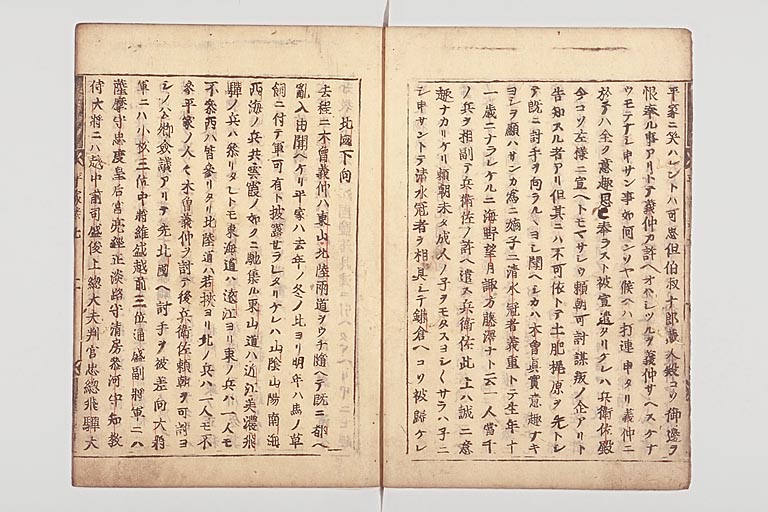 平家ニ笑ハレントハ可思但伯叔十郎蔵人殿コソ御邊ヲ
恨奉ル事アリトテ義仲カ許ヘオハシツルヲ義仲サヘスケナ
ウモテナシ申サン事如何ンソヤ候ヘハ打連申タリ義仲ニ
於テハ全ク意趣思ヒ奉ラスト被宣遣タリケレハ兵衛佐殿
今コソ左様ニ宣ヘトモマサシウ頼朝可討謀叛ノ企アリト
告知スル者アリ但其ニハ不可依トテ土肥梶原ヲ先トシ
テ既ニ討手ヲ向ラルヽヨシ聞ヘシカハ木曽真實意趣ナキ
ヨシヲ顕ハサンカ為ニ嫡子ニ清水冠者義重トテ生年十
一歳ニナラレケルニ海野望月諏方藤澤ナト云一人當千
ノ兵ヲ相副テ兵衛佐ノ許ヘ遣ス兵衛佐此上ハ誠ニ意
趣ナカリケリ頼朝未タ成人ノ子ヲモタスヨシヽサラハ子ニ
シ申サントテ清水冠者ヲ相具シテ鎌倉ヘコソ被歸ケレ
北國下向
去程ニ木曽義仲ハ東山北陸両道ヲウチ随ヘテ既ニ都ヘ
亂入由聞ヘケリ平家ハ去年ノ冬ノ比ヨリ明年ハ馬ノ草
飼ニ付テ軍可有ト披露セラレタリケレハ山陰山陽南海
西海ノ兵共雲霞ノ如クニ馳集ル東山道ハ近江美濃飛
騨ノ兵ハ参リタレトモ東海道ハ遠江ヨリ東ノ兵ハ一人モ
不参西ハ皆参リタリ北陸道ハ若狭ヨリ北ノ兵ハ一人モ不
参平家ノ人々木曽義仲ヲ討テ後兵衛佐頼朝ヲ可討ヨ
シノ公卿僉議アリテ先北國ヘ討手ヲ被差向大将
軍ニハ小松三位中将維盛越前三位通盛副将軍ニハ
薩摩守忠度皇后宮亮經正淡路守清房参河守知教
侍大将ニハ越中前司盛俊上総大夫判官忠総飛騨大